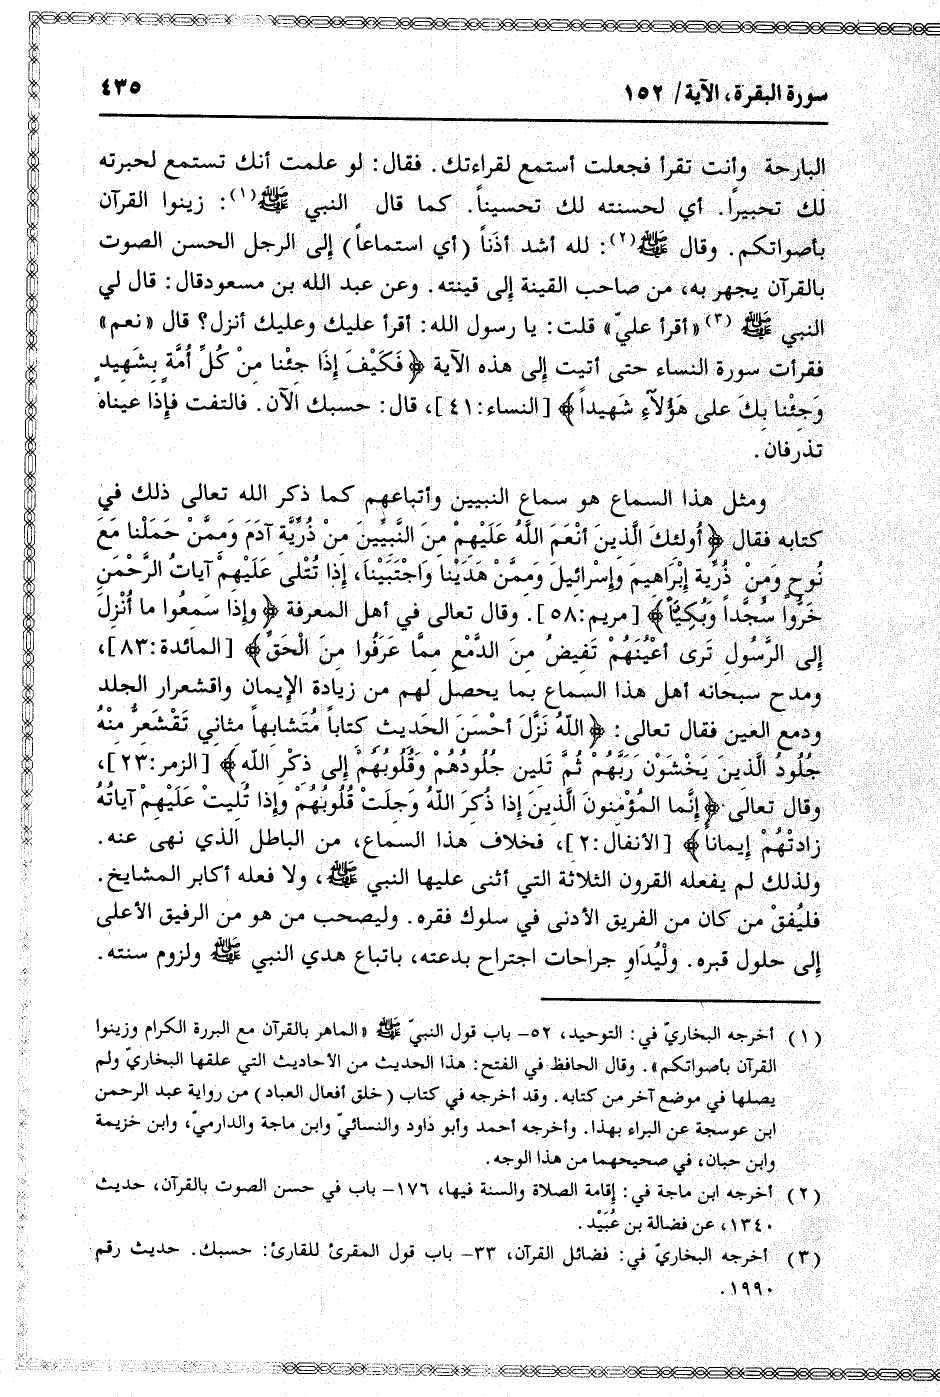 سورة البقرة، الآية/ ١٥٢ ٤٣٥
البارحة وأنت تقرأ فجعلت أستمع لقراءتك. فقال: لو علمت أنك تستمع لحبرته
لك تحبيراً. أي لحسنته لك تحسيناً. كما قال النبي ﷺ(١): زينوا القرآن
بأصواتكم. وقال ﷺ(٢): لله أشد أذَناً (أي استماعاً) إلى الرجل الحسن الصوت
بالقرآن يجهر به، من صاحب القينة إلى قينته. وعن عبد الله بن مسعودقال: قال لي
النبي ﷺ (٣) «أقرأ عليّ» قلت: يا رسول الله: أقرأ عليك وعليك أنزل؟ قال «نعم»
فقرأت سورة النساء حتى أتيت إلى هذه الآية ﴿فَكَيْفَ إِذَا جِئْنا مِنْ كُلِّ أُمَّةٍ بِشَهِيدٍ
وَجِئْنا بِكَ على هَؤُلآءِ شَهِيداً﴾ [النساء:٤١]، قال: حسبك الآن. فالتفت فإذا عيناه
تذرفان.
ومثل هذا السماع هو سماع النبيين وأتباعهم كما ذكر الله تعالى ذلك في
كتابه فقال ﴿أُولئكَ الَّذينَ أَنْعَمَ اللَّهُ عَلَيْهِمْ مِنَ النَّبِيِّينَ مِنْ ذُرِّيَّةِ آدَمَ وَمِمَّنْ حَمَلْنا مَعَ
نُوحٍ وَمِنْ ذُرِّيةِ إِبْرَاهِيمَ وإِسْرائيلَ وَمِمَّنْ هَدَيْنا وَاجْتَبَيْنا، إذا تُتْلى عَلَيْهِمْ آياتُ الرَّحْمٰنِ
خَرُّوا سُجَّداً وَبُكِيّاً﴾ [مريم:٥٨]. وقال تعالى في أهل المعرفة ﴿وإذا سَمِعُوا ما أُنْزِلَ
إلى الرَّسُولِ تَرى أَعْيُنَهُمْ تَفيضُ مِنَ الدَّمْعِ مِمَّا عَرَفُوا مِنَ الْحَقِّ﴾ [المائدة:٨٣]،
ومدح سبحانه أهل هذا السماع بما يحصل لهم من زيادة الإيمان واقشعرار الجلد
ودمع العين فقال تعالى: ﴿اللّهُ نَزَّلَ أَحْسَنَ الحَديث كتاباً مُتَشابِهاً مثاني تَقْشَعِرُّ مِنْهُ
جُلُودُ الَّذينَ يَخْشَوْنَ رَبَّهُمْ ثُمَّ تَلين جُلُودُهُمْ وَقُلُوبُهُمْ إلى ذكْرِ اللّه﴾ [الزمر:٢٣]،
وقال تعالى ﴿إنَّما المُؤْمِنونَ الَّذينَ إذا ذُكِرَ اللّهُ وَجِلَتْ قُلُوبُهُمْ وإذا تُلِيتْ عَلَيْهِمْ آياتُهُ
زادتْهُمْ إيماناً﴾ [الأنفال:٢]، فخلاف هذا السماع، من الباطل الذي نهى عنه.
ولذلك لم يفعله القرون الثلاثة التي أثنى عليها النبي ﷺ، ولا فعله أكابر المشايخ.
فليُفقْ من كان من الفريق الأدنى في سلوك فقره. وليصحب من هو من الرفيق الأعلى
إلى حلول قبره. ولْيُدَاوِ جراحات اجتراح بدعته، باتباع هدي النبي ﷺ ولزوم سنته.
(١) أخرجه البخاريّ في: التوحيد، ٥٢- باب قول النبيّ ﷺ «الماهر بالقرآن مع البررة الكرام وزينوا
القرآن بأصواتكم». وقال الحافظ في الفتح: هذا الحديث من الأحاديث التي علقها البخاريّ ولم
يصلها في موضع آخر من كتابه. وقد أخرجه في كتاب (خلق أفعال العباد) من رواية عبد الرحمن
ابن عوسجة عن البراء بهذا. وأخرجه أحمد وأبو داود والنسائيّ وابن ماجة والدارميّ، وابن خزيمة
وابن حبان، في صحيحهما من هذا الوجه.
(٢) أخرجه ابن ماجة في: إقامة الصلاة والسنة فيها، ١٧٦- باب في حسن الصوت بالقرآن، حديث
١٣٤٠، عن فضالة بن عُبَيْد.
(٣) أخرجه البخاريّ في: فضائل القرآن، ٣٣- باب قول المقرئ للقارئ: حسبك. حديث رقم
١٩٩٠.